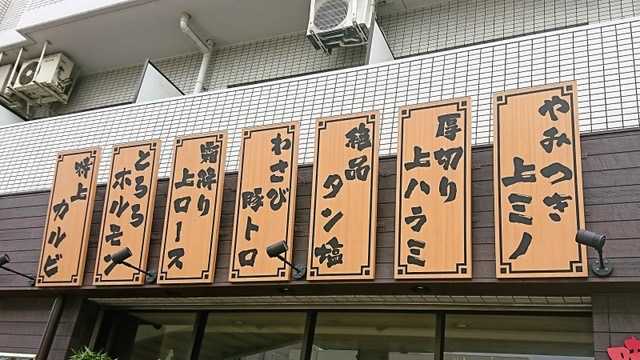 やみつき
上ミノ
厚切り
上ハラミ
絶品
タン塩
わさび
豚トロ
霜降り
上ロース
とろろ
ホルモン
特上
カルビ